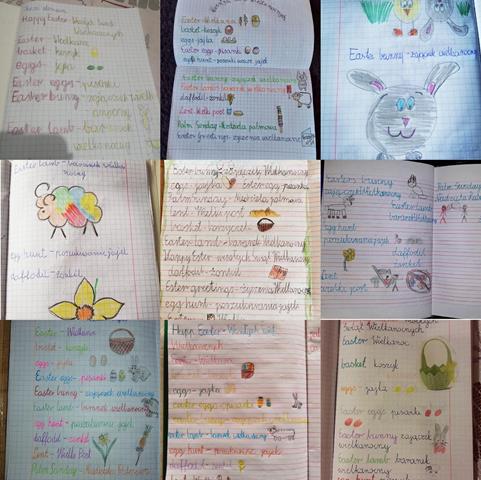 Happy Easter - Wesołych Świąt
Wielkanocnych
Easter - Wielkanoc
basket - koszyk
eggs - jajka
Easter eggs - pisanki
Easter bunny - zajączek
Easter lamb - baranek
Easter - Wielkanoc
basket - koszyk
eggs - jajka
Easter eggs - pisanki
Easter bunny - zajączek wielkanocny
Easter lamb - baranek wielkanocny
daffodil - żonkil
Lent - Wielki post
Palm Sunday - Niedziela palmowa
Easter Greetings - życzenia wielkanocne
Easter bunny - zajączek wielkanocny
Easter lamb - baranek wielka
nocny
egg hunt - poszukiwanie jajek
daffodil - żonkil
Easter bunny - zajączek Wielkanocny
eggs - jajka Easter eggs - pisanki
Palm Sunday - Niedziela palmowa
Lent - Wielki post
basket - koszyczek
Easter Land - baranek Wielkanocny
Happy Easter - wesołych świąt Wielkanocnych
daffodil - żonkil
Easter greetings - życzenia Wielkanocne
egg hunt - poszukiwanie jajek
Easter bunny
zajączek Wielkanocny
Easter lamb
baranek Wielkanocny
egg hunt
poszukiwanie jajek
daffodil
żonkil
Lent
wielki post
Palm Sunday
Niedziela
Easter - Wielkanoc
basket - koszyk
eggs - jajka
Easter eggs - pisanki
Easter bunny - zajączek wielkanocny
Easter lamb - baranek wielkanocny
egg hunt - poszukiwanie jajek
daffodil - żonkil
Lent - Wielki Post
Palm Sunday - Niedziela Palmowa
Happy Easter - Wesołych Świąt
Wielkanocnych
Easter - Wielkanoc
basket - koszyk
eggs - jajka
Easter eggs - pisanki
Easter lamb - baranek wielkanocny
egg hunt - poszukiwanie jajek
daffodil - żonkil
Lent - Wielki post
Świąt Wielkanocnych
Easter Wielkanoc
basket koszyk
eggs - jajka
Easter eggs pisanki
Easter bunny zajączek
wielkanocny
Easter lamb baranek
wielkanocny
egg hunt